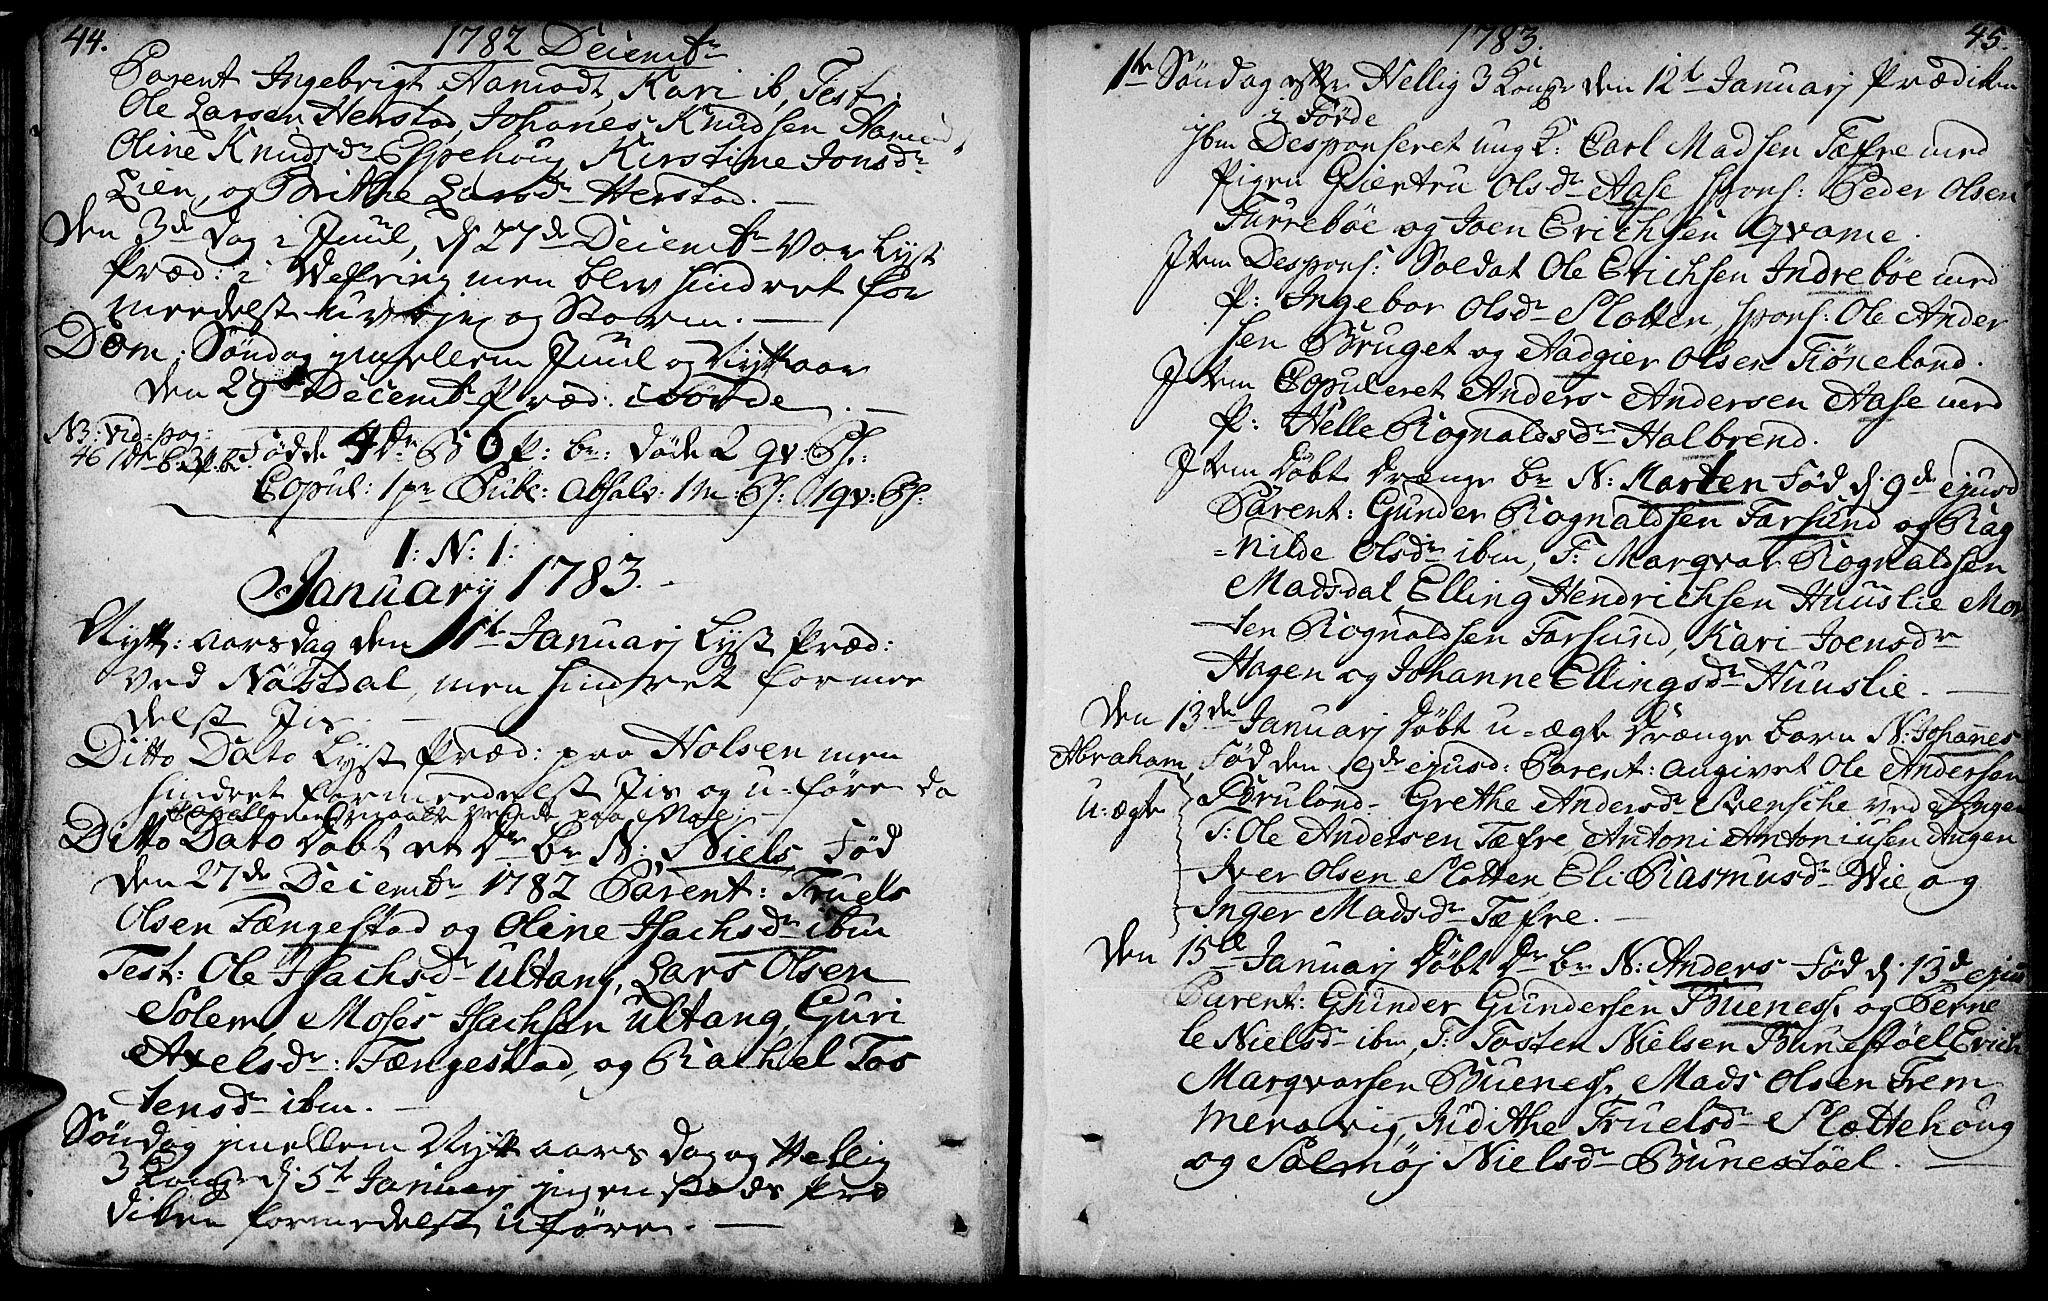 44.
1782 Decembr
Parent Ingebrigt Aamodt, Kari ib, Test:
Ole Larsen Herstad, Johanes Knudsen Aamod,
Oline Knudsdr Espehoug Kirstine Jonsdr
Lien, og Brithe Larsdr Herstad. —
Den 3de Dag i Juul, d 27de Decembr var lyst
Præd: i Vefring men blev hindret for
meedelst og Storm. —
Dom: Søndag jmellem Juul og Nytt aar
den 29de Decembr præd: i Førde. —
NB: vid: pag: 46
Fødde 4 dr B 6 p: br: døde 2 qv: Ps:
Copul: 1 pr Publ: Absolv: 1 m: Ps: 1 qv: Ps:
I: N: I:
January 1783. —
Nytt: aarsdag den 1te Januarj lyst Præd:
ved Nøstdal, men hindret forme
delst Jis. —
Ditto Dato lyst Præd: paa Holsen men
hindret formeedelst Jis og u-føre da
Ditto Dato Døbt et Dr br N: Niels, Fød
den 27de Decembr 1782 Parent: Truels
Olsen Fængestad og Oline Isachsdr ibm
Test: Ole Isachsdr Ultang, Lars Olsen
Solem, Moses Isachsen Ultang, Guri
Axelsdr: Fængestad, og Rachel Tos
tensdr ibm. —
Søndag jmellem Nytt aars dag og Hellig
3 Kong: d 5te Januarj jngen stæds Præ
diken formedelst uføre. —
1783.
45.
1te Søndag efter Hellig 3 Konger den 12te Januarj Prædiken
i Førde
ibm Desponseret ung K: Carl Madsen Tæfre med
Pigen Giertru Olsdr Aase spons: Peder Olsen
Furrebøe og Joen Erichsen Qvame.
Item Despons: Soldat Ole Erichsen Indrebøe med
P: Ingebor Olsdr Slotten, spons: Ole Ander
sen Bruget og Aadgier Olsen Fiøneland.
Item Copuleret Anders Andersen Aase med
P: Helle Rognaldsdr Halbrend.
Item Døbt Drænge br N: Morten Fød d: 9de ejusd
Parent: Gunder Rognaldsen Farsund og Rag
=nilde Olsdr ibm, T: Marqvar Rognaldsen
Madsdal Elling Hendrichsen Huuslie Mor
ten Rognaldsen Farsund, Kari Joensdr
Hagen og Johanne Ellingsdr Huuslie. —
Den 13de Januarj Døbt u=ægte Drænge barn N: Johanes
Abraham, Fød den 9de ejusd: Parent: angivet Ole Andersen
u: ægte
Børuland Grethe Andersdr Svensche ved Angen
T: Ole Andersen Tæfre, Antoni Antoniusen Angen
Iver Olsen Slotten Eli Rasmusdr Wie og
Inger Madsdr Tæfre. —
Den 15de Januarj Døbt Dr br N: Anders Fød d: 13de ejus
Parent: Ghunder Gundersen Bueness, og Perne
le Nielsdr ibm, T: Tosten Nielsen Bunestøel Erich
Marqvorsen Bueness, Mads Olsen Frem
mervig, Judithe Truelsdr Slættehoug
og Salmøj Nielsdr Bunestøel. —